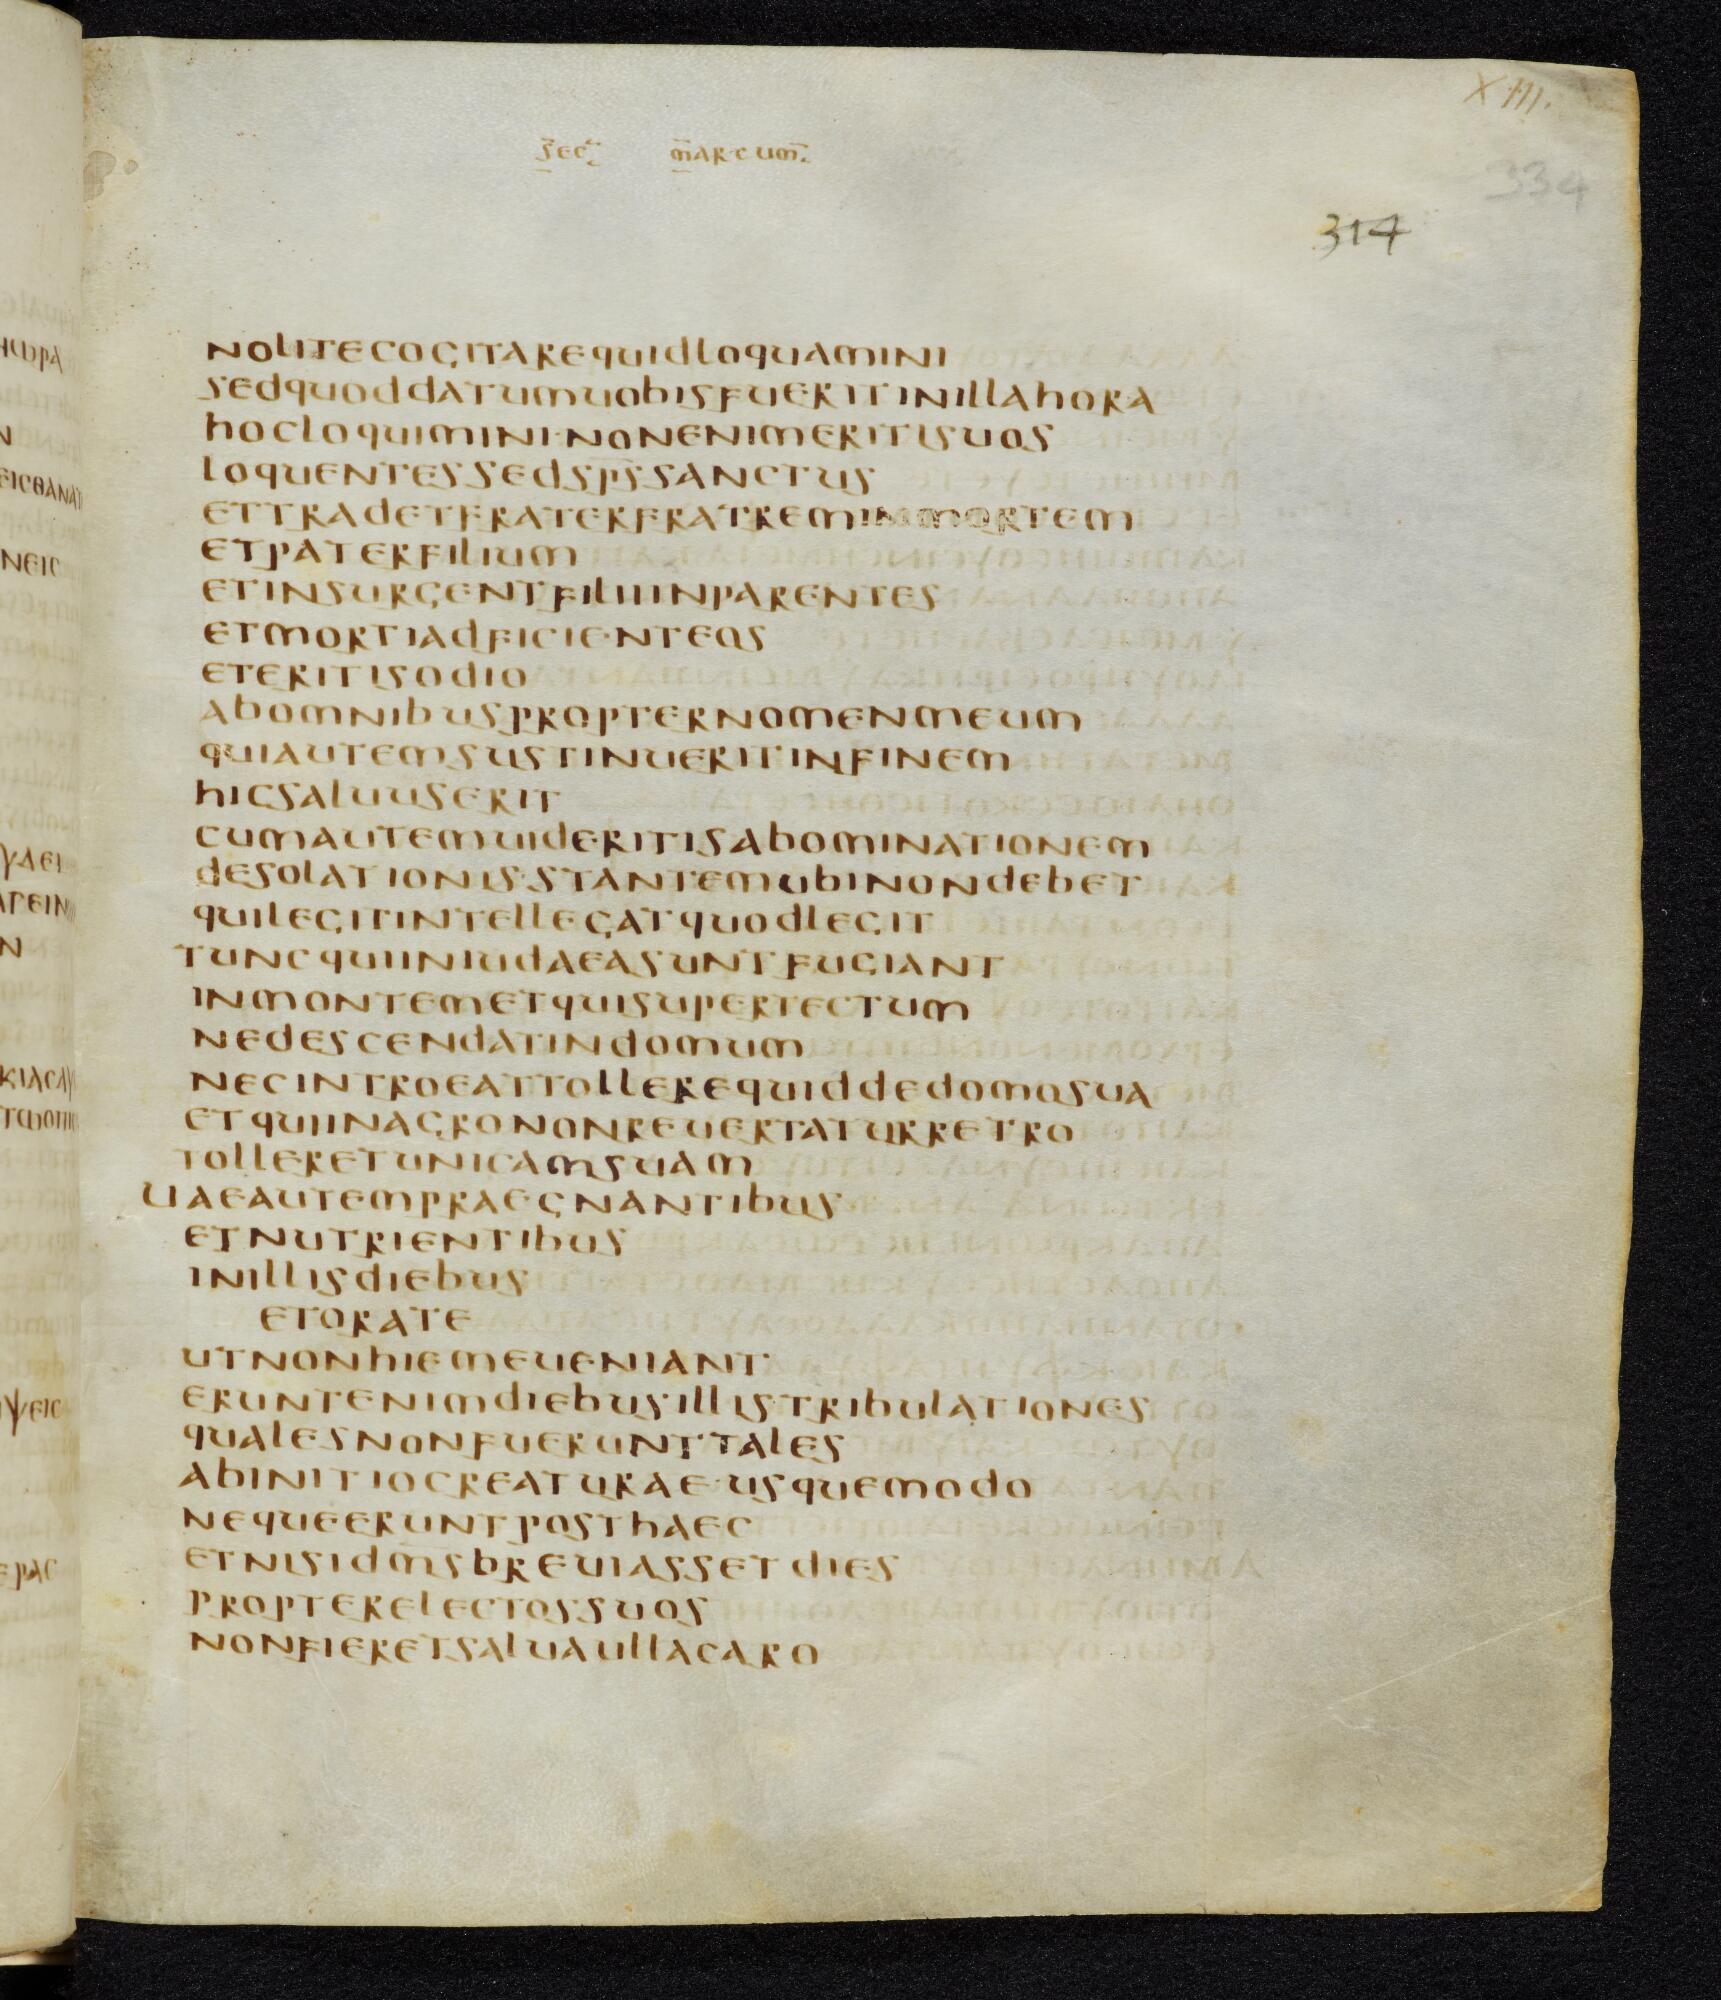 XIII.
334
sec̅ marcum̅
314
nolitecogitarequidloquamini
sedquoddatumuobisfueritinillahora
hocloquimini·nonenimeritisuos
loquentessedsp̅s̅sanctus
ettradetfraterfratreminmortem
etpaterfilium
etinsurgentfiliiinparentes
etmortiadficienteos
eteritisodio
abomnibuspropternomenmeum
quiautemsustinueritinfinem
hicsaluuserit
cumautemuideritisabominationem
desolationis·stantemubinondebet
quilegitintellegatquodlegit
tuncquiiniudaeasuntfugiant
inmontemetquisupertectum
nedescendatindomum
necintroeattollerequiddedomosua
etquiinagrononreuertaturretro
tolleretunicamsuam
uaeautempraegnantibus
etnutrientibus
inillisdiebus
etorate
utnonhiemeueniant
eruntenimdiebusillistribulationes
qualesnonfuerunttales
abinitiocreaturae·usquemodo
nequeeruntposthaec
etnisidmsbreuiassetdies
propterelectossuos
nonfieretsaluaullacaro